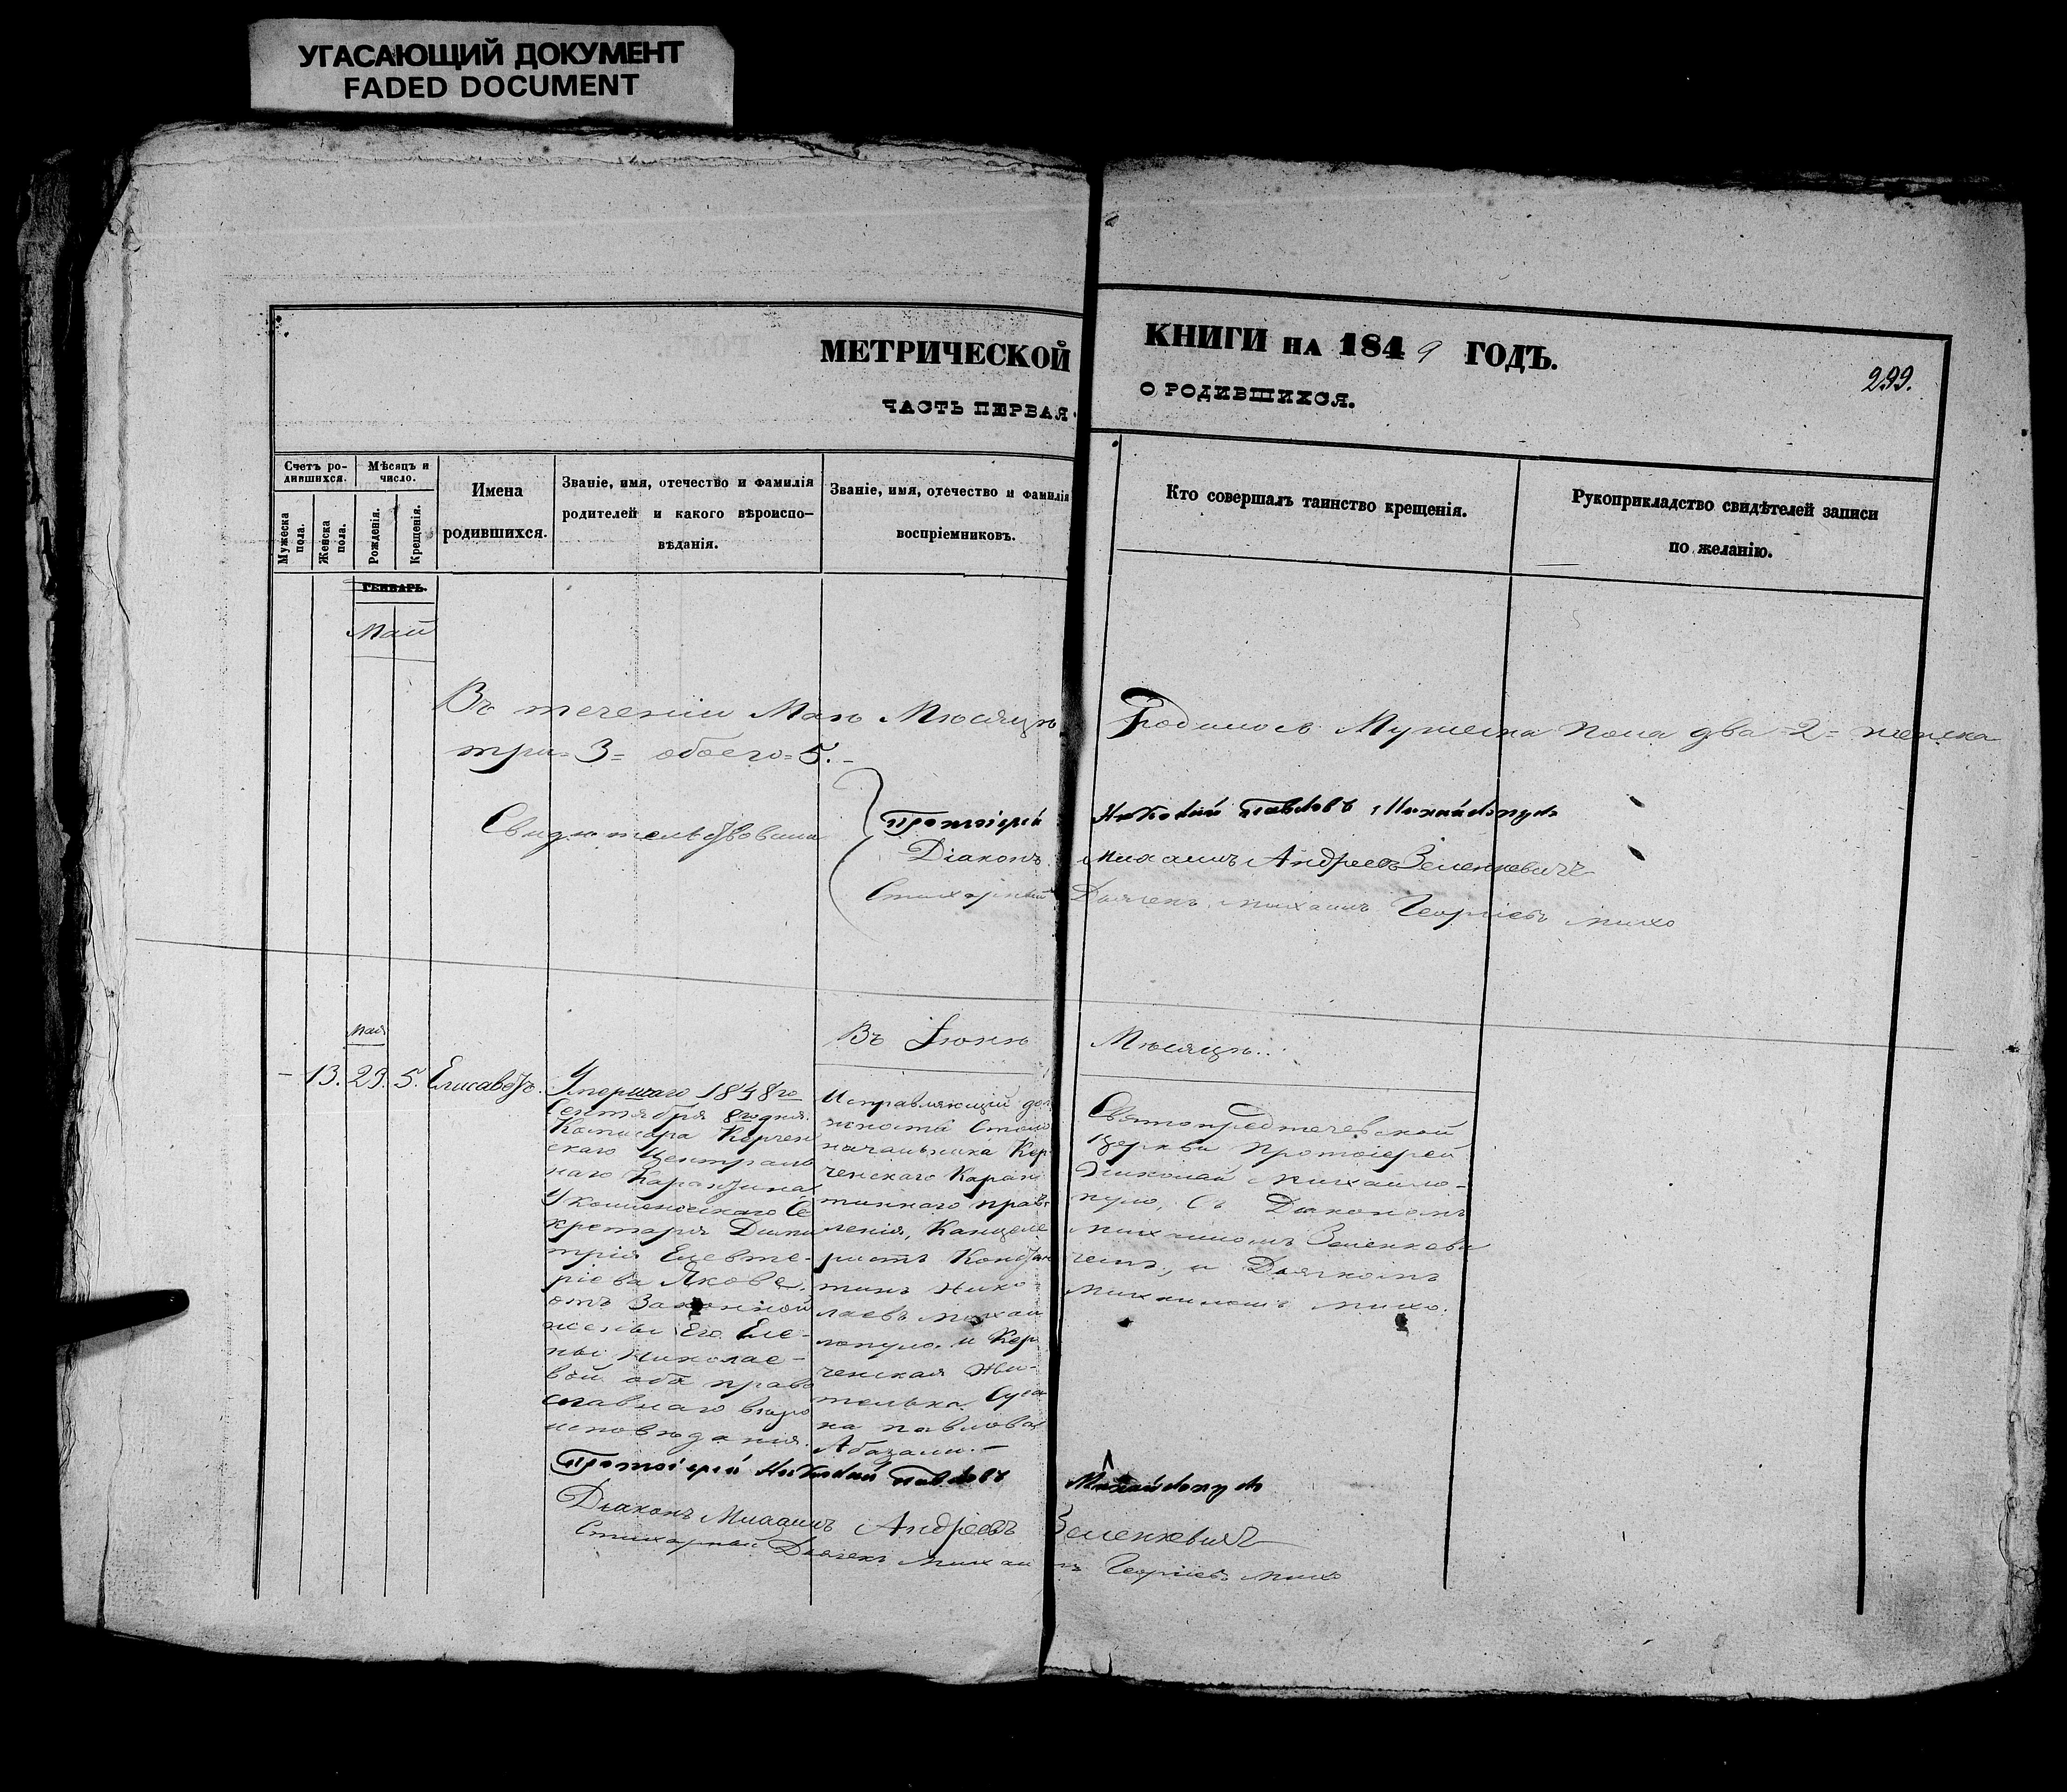 УГАСАЮЩИЙ ДОКУМЕНТ
FADED DOCUMENT
МЕТРИЧЕСКОЙ КНИГИ НА 1849 ГОДЪ.
299.
ЧАСТЬ ПЕРВАЯ О РОДИВШИХСЯ.
Счетъ ро-
дившихся.
Мужеска
пола.
Женска
пола.
Мѣсяцъ и
число.
Рожденія.
Крещенія.
Имена
родившихся.
Званіе, имя, отечество и фамилія
родителей и какого вѣроиспо-
вѣданія.
Званіе, имя, отечество и фамилія
воспріемниковъ.
Кто совершалъ таинство крещенія.
Рукоприкладство свидѣтелей записи
по желанію.
ГЕНВАРЬ.
Май
Въ теченіи Маѣ Мѣсяцѣ Родилось Мужеска пола два =2= женска
три =3= обоего =5.
Свидѣтельствовали
Протоіерей Николай Павловъ Михайлопуло
Діаконъ Михаилъ Андреевъ Зеленкевичъ
Стихарный Дьячекъ Михаилъ Георгіевъ Михо
Въ Іюнѣ Мѣсяцѣ.
Мая
13. 29. 5. Елисаветъ.
Умершаго 1848го
Сентября 8го дня
Комисара Керчен
скаго Централь
наго Карантина
Коллежскаго Се
кретаря Дими
трія Елевте-
ріева Якове,
отъ Законной
жены Его Еле-
ны Николае-
вой оба право
славнаго вѣро
исповѣданія.
Исправляющій дол
жность Столо
начальника Кер
ченскаго Каран
тиннаго прав
ленія, Канцеля
ристъ Констан
тинъ Нико
лаевъ Михай
лопуло и Кер
ченская Жи-
телька
на Павлова
Святопредтечевской
Церкви Протоіерей
Николай Михайло-
пуло, Съ Діакономъ
Михаиломъ Зеленкеви
чемъ, и Дьячкомъ
Михаиломъ Михо.
Протоіерей Николай Павловъ Михайлопуло
Діаконъ Михаилъ Андреевъ Зеленкевичъ
Стихарный Дьячекъ Михаилъ Георгіевъ Михо